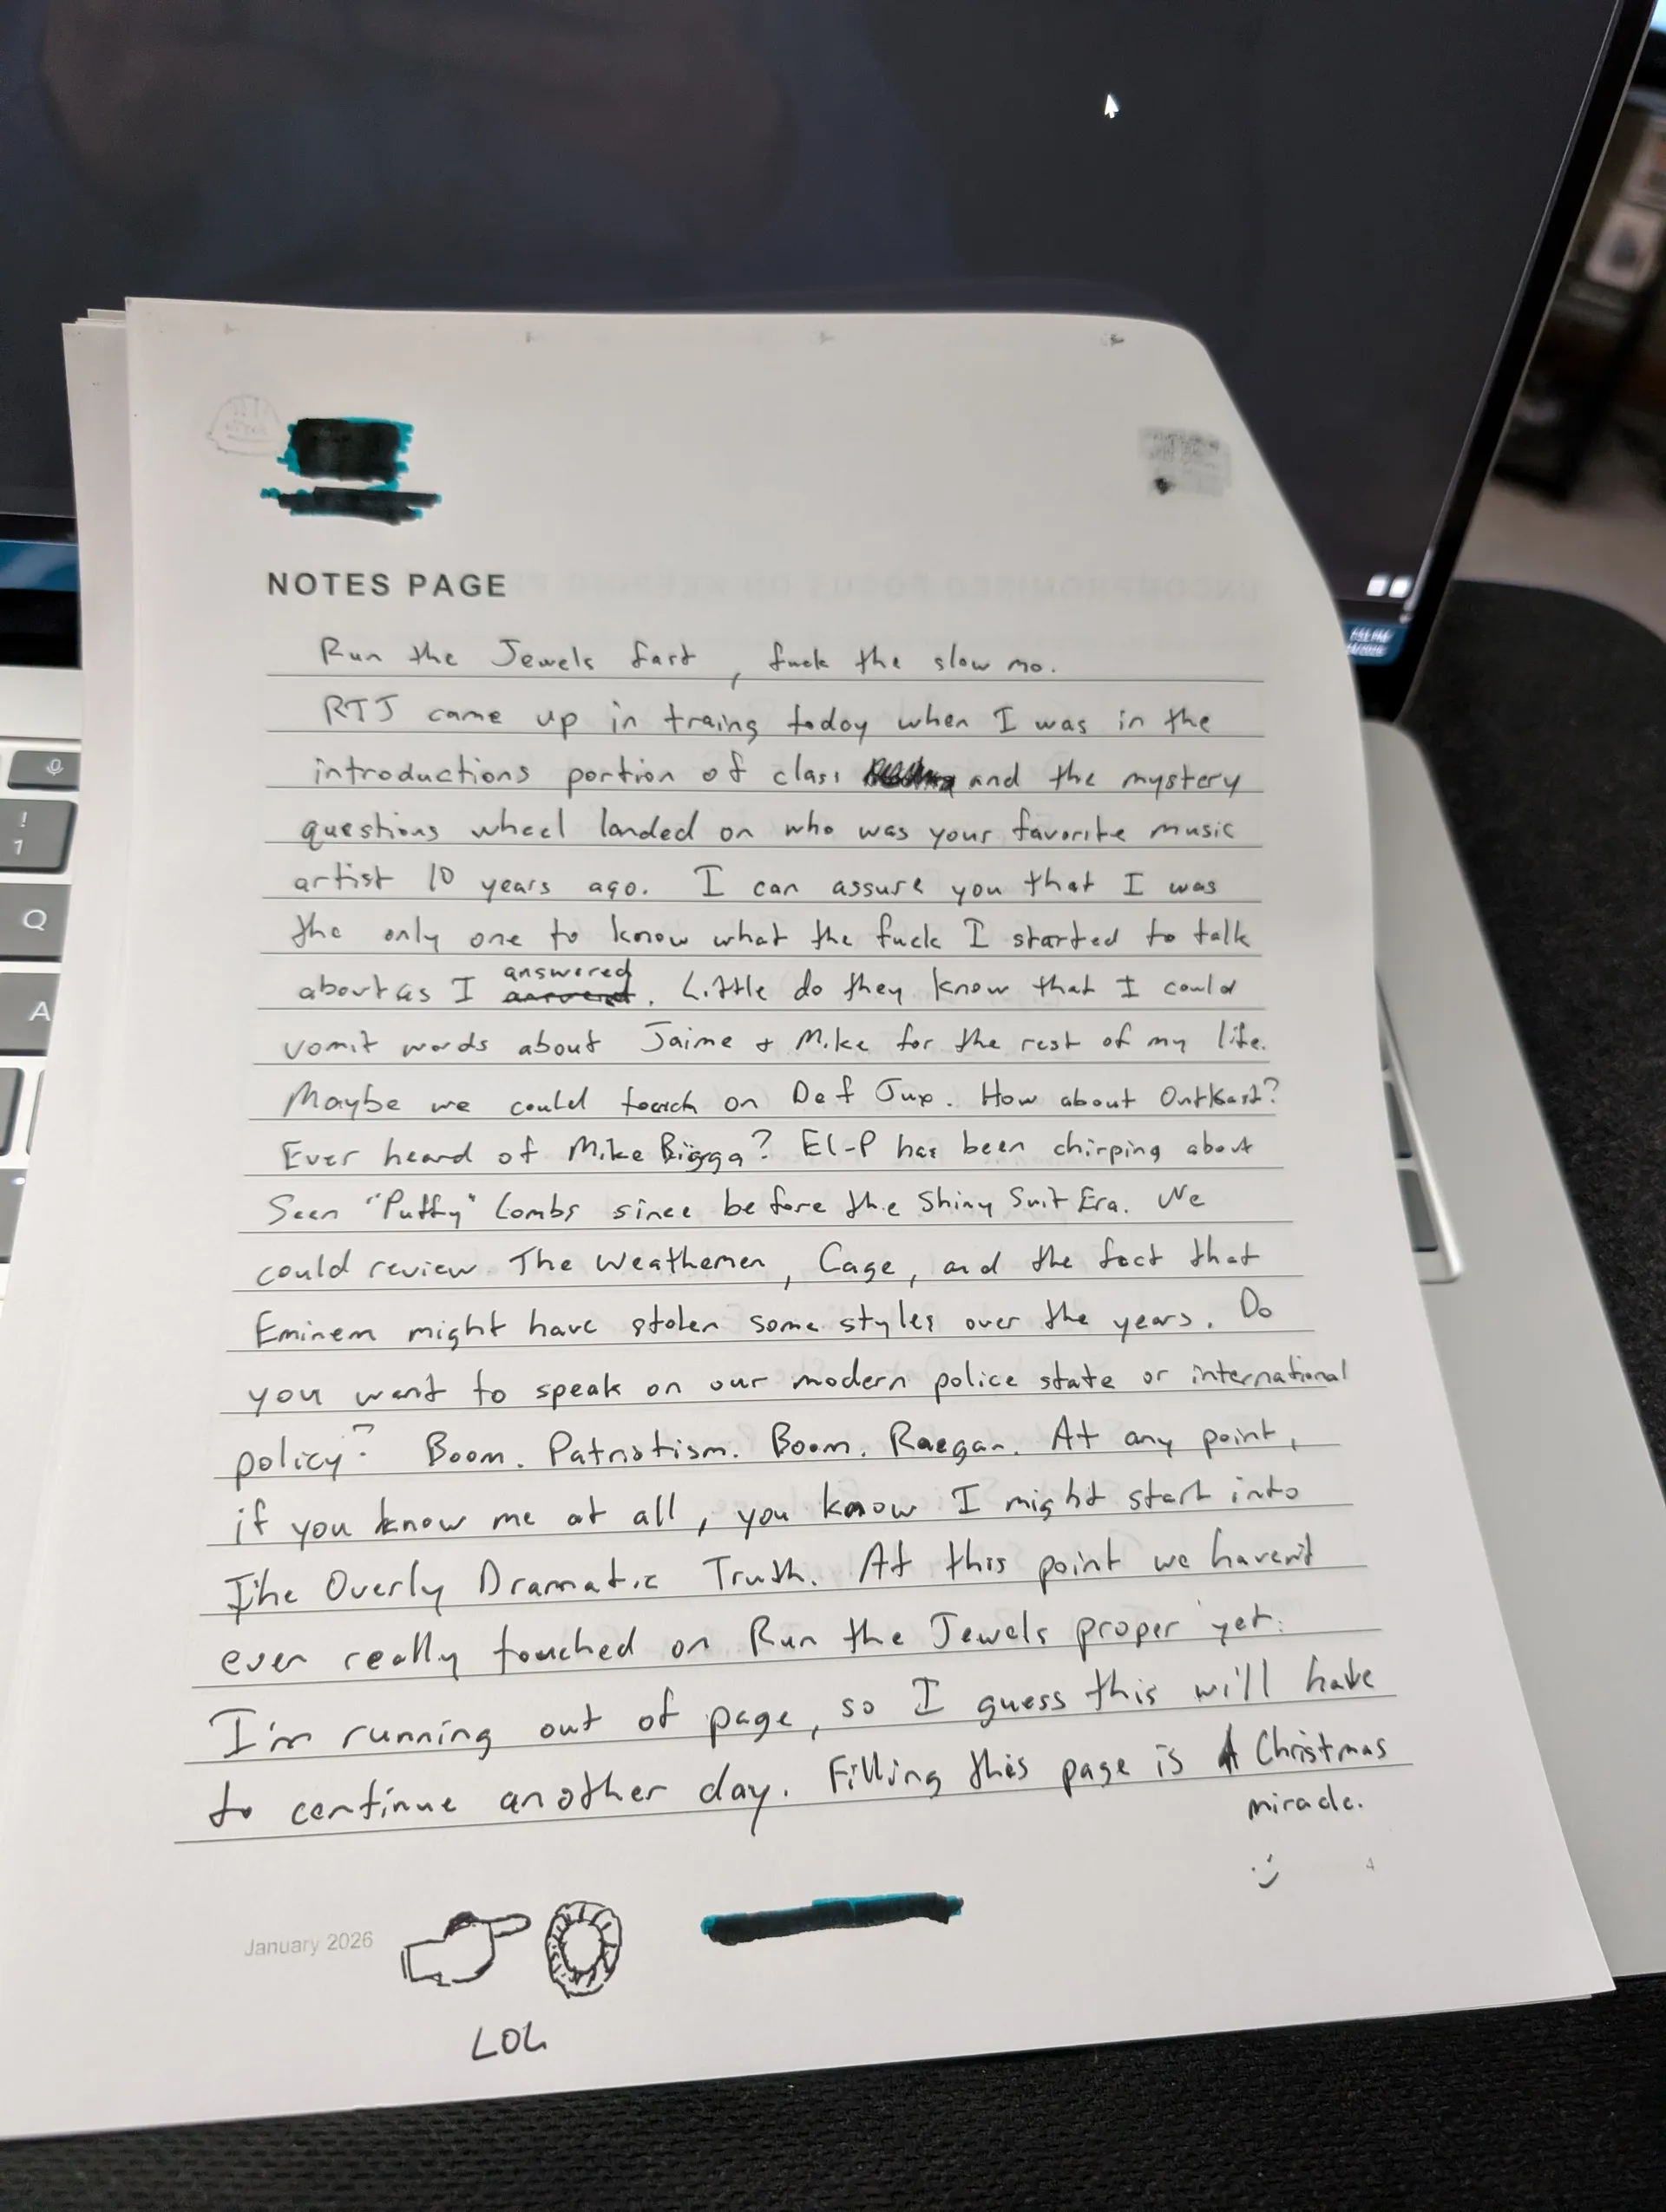 NOTES PAGE
Run the Jewels fast, fuck the slow mo.
RTJ came up in traing today when I was in the
introductions portion of class and the mystery
questions wheel landed on who was your favorite music
artist 10 years ago. I can assure you that I was
the only one to know what the fuck I started to talk
about as I answered. Little do they know that I could
vomit words about Jaime + Mike for the rest of my life.
Maybe we could touch on Def Jux. How about Outkast?
Ever heard of Mike Bigga? El-P has been chirping about
Sean "Puffy" Combs since before the Shiny Suit Era. We
could review The Weathemen, Cage, and the fact that
Eminem might have stolen some styles over the years. Do
you want to speak on our modern police state or international
policy? Boom. Patriotism. Boom. Raegan. At any point,
if you know me at all, you know I might start into
The Overly Dramatic Truth. At this point we haven't
even really touched on Run the Jewels proper yet.
I'm running out of page, so I guess this will have
to continue another day. Filling this page is A Christmas
miracle.
:)
4
January 2026
LOL